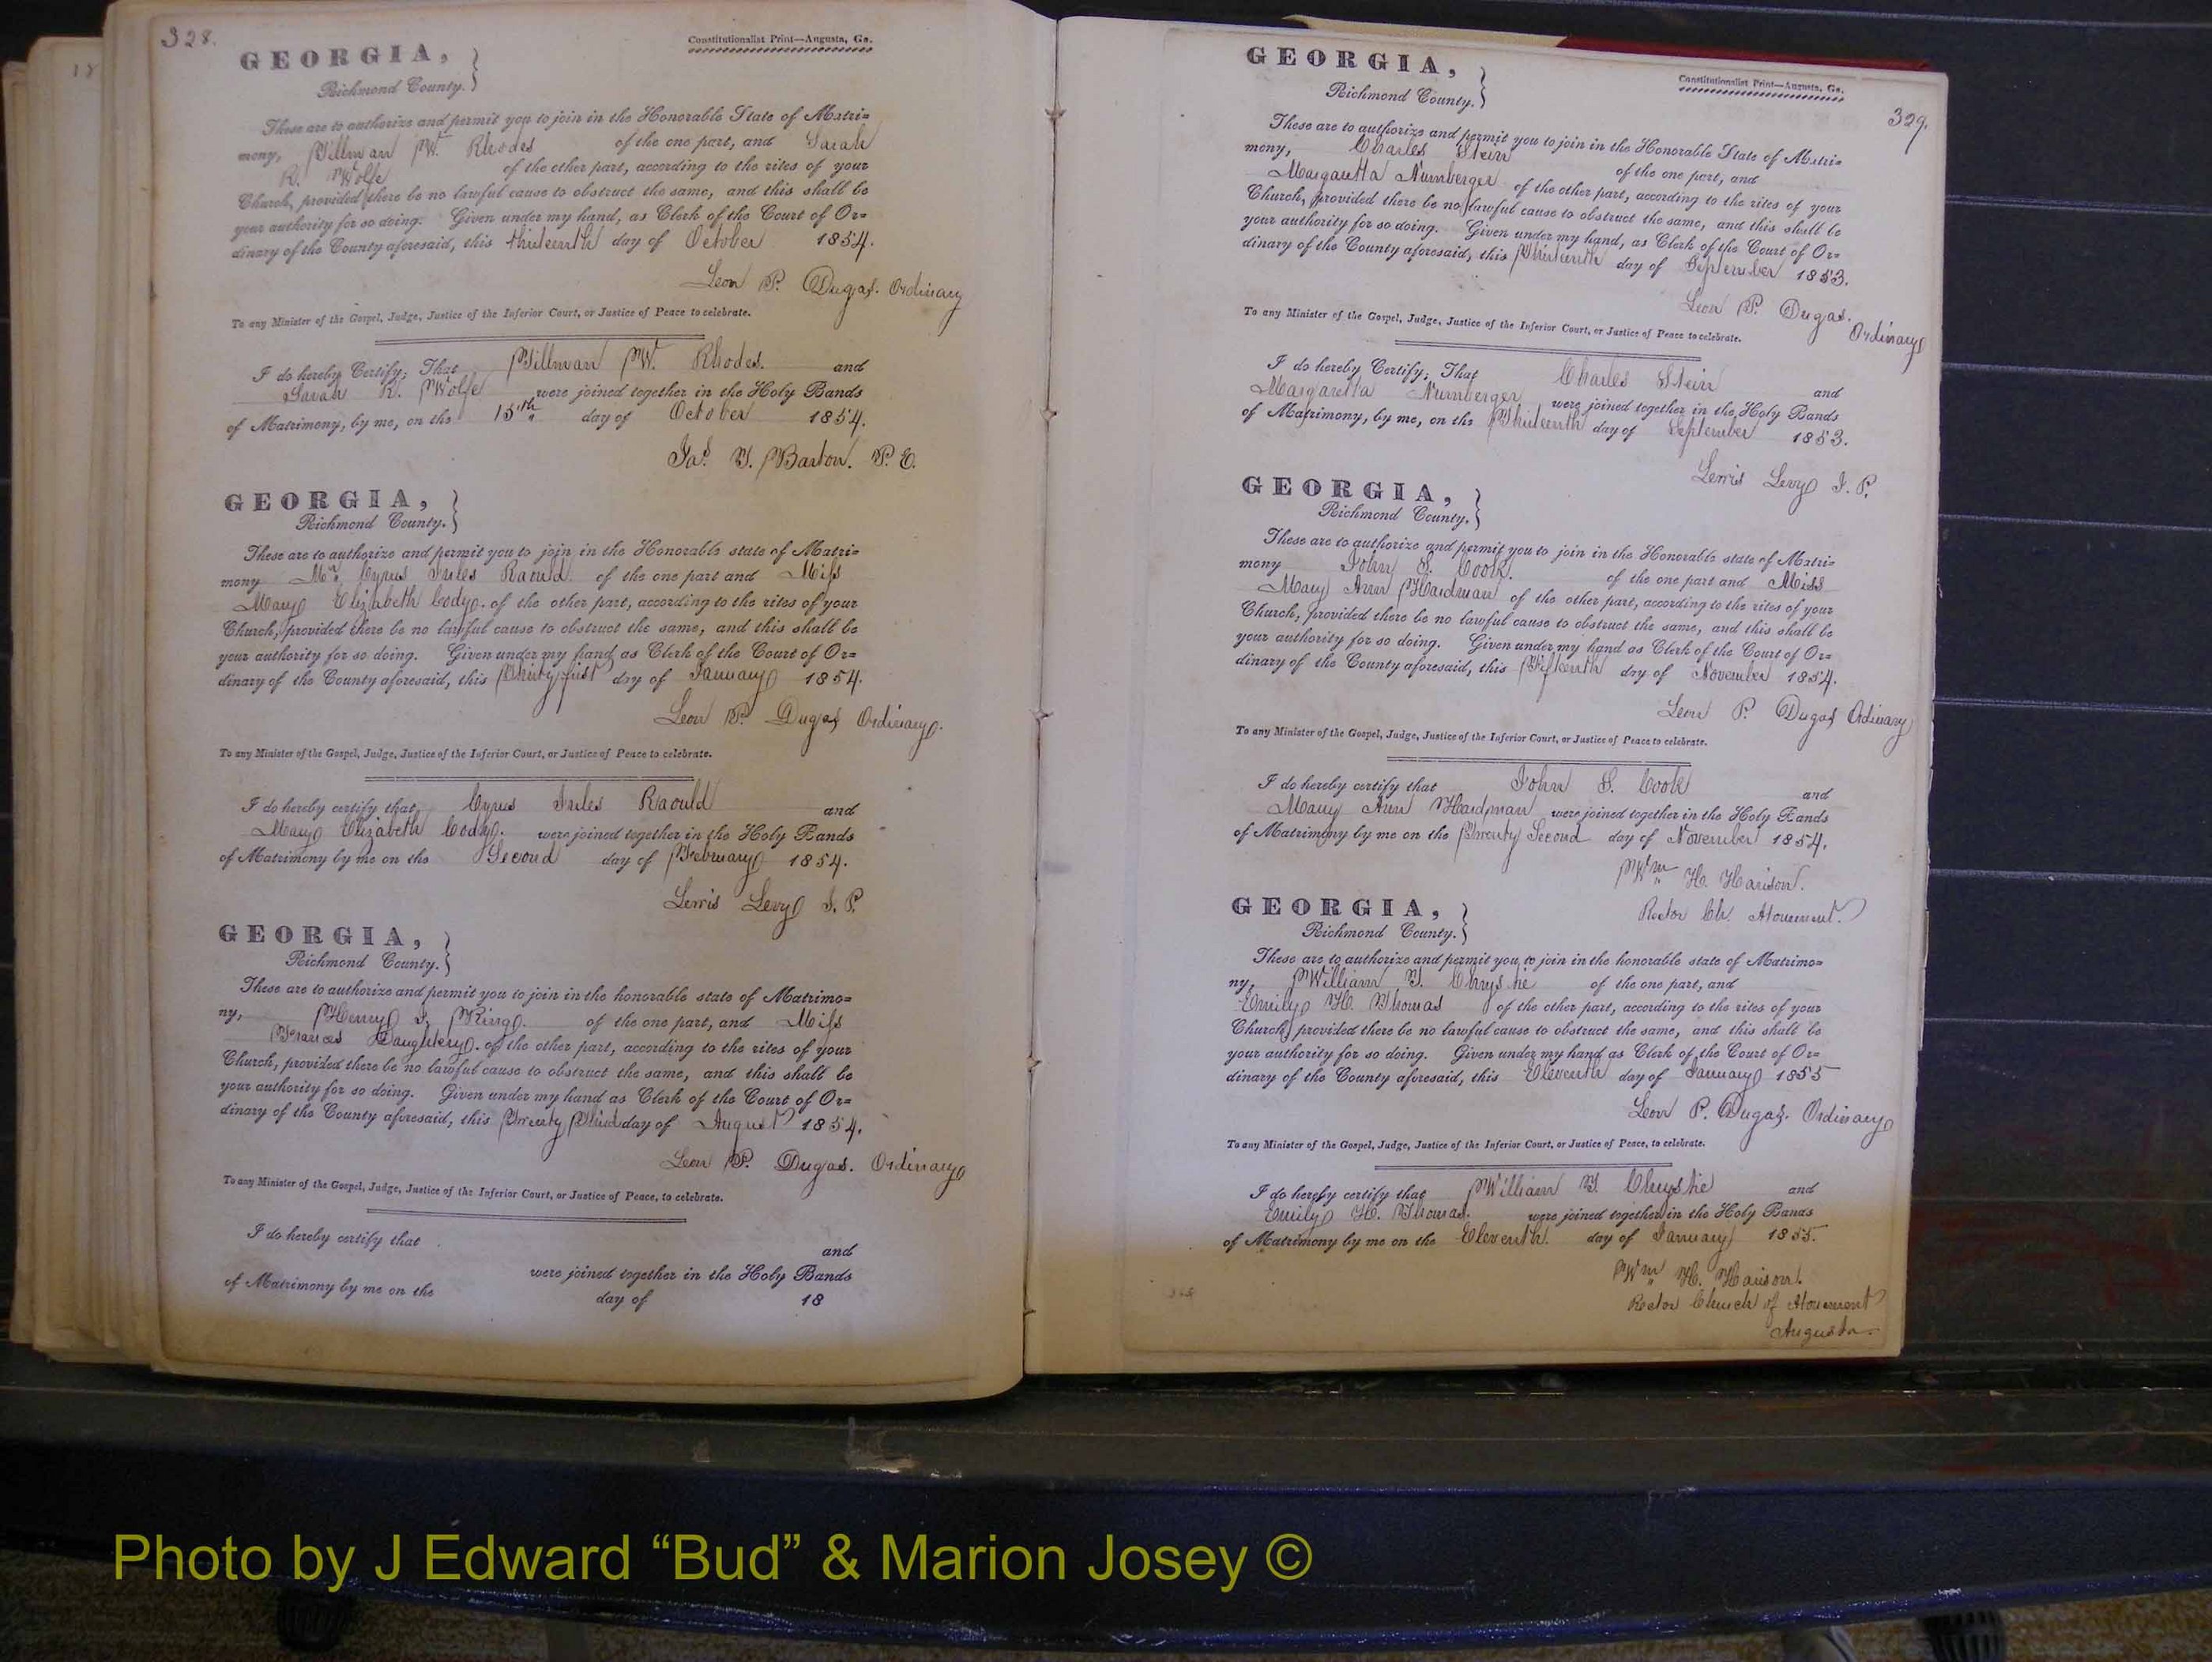 328.
Constitutionalist Print—Augusta, Ga.
GEORGIA,
Richmond County.
These are to authorize and permit you to join in the Honorable State of Matri=
mony, Tillman W. Rhodes of the one part, and Sarah
R. Wolfe of the other part, according to the rites of your
Church, provided there be no lawful cause to obstruct the same, and this shall be
your authority for so doing. Given under my hand, as Clerk of the Court of Or=
dinary of the County aforesaid, this thirteenth day of October 1854.
Leon P. Dugas. Ordinary
To any Minister of the Gospel, Judge, Justice of the Inferior Court, or Justice of Peace to celebrate.
I do hereby Certify, That Tillman W. Rhodes. and
Sarah R. Wolfe were joined together in the Holy Bands
of Matrimony, by me, on the 15th day of October 1854.
Jas. T. Barton. P. E.
GEORGIA,
Richmond County.
These are to authorize and permit you to join in the Honorable state of Matri=
mony Mr. Cyrus Jules Raould of the one part and Miss
Mary Elizabeth Cody. of the other part, according to the rites of your
Church, provided there be no lawful cause to obstruct the same, and this shall be
your authority for so doing. Given under my hand as Clerk of the Court of Or=
dinary of the County aforesaid, this Thirty first day of January 1854.
Leon P. Dugas Ordinary.
To any Minister of the Gospel, Judge, Justice of the Inferior Court, or Justice of Peace to celebrate.
I do hereby certify that Cyrus Jules Raould and
Mary Elizabeth Cody. were joined together in the Holy Bands
of Matrimony by me on the Second day of February 1854.
Lewis Levy J. P.
GEORGIA,
Richmond County.
These are to authorize and permit you to join in the honorable state of Matrimo=
ny, Henry J. King. of the one part, and Miss
Frances Daughtery. of the other part, according to the rites of your
Church, provided there be no lawful cause to obstruct the same, and this shall be
your authority for so doing. Given under my hand as Clerk of the Court of Or=
dinary of the County aforesaid, this Twenty Third day of August 1854.
Leon P. Dugas. Ordinary
To any Minister of the Gospel, Judge, Justice of the Inferior Court, or Justice of Peace, to celebrate.
I do hereby certify that and
were joined together in the Holy Bands
of Matrimony by me on the day of 18
Constitutionalist Print—Augusta, Ga.
329.
GEORGIA,
Richmond County.
These are to authorize and permit you to join in the Honorable State of Matri=
mony, Charles Stein of the one part, and
Margaretta Nurnberger of the other part, according to the rites of your
Church, provided there be no lawful cause to obstruct the same, and this shall be
your authority for so doing. Given under my hand, as Clerk of the Court of Or=
dinary of the County aforesaid, this Thirteenth day of September 1853.
Leon P. Dugas. Ordinary
To any Minister of the Gospel, Judge, Justice of the Inferior Court, or Justice of Peace to celebrate.
I do hereby Certify, That Charles Stein and
Margaretta Nurnberger were joined together in the Holy Bands
of Matrimony, by me, on the Thirteenth day of September 1853.
Lewis Levy J. P.
GEORGIA,
Richmond County.
These are to authorize and permit you to join in the Honorable state of Matri=
mony John S. Cook. of the one part and Miss
Mary Ann Hardman of the other part, according to the rites of your
Church, provided there be no lawful cause to obstruct the same, and this shall be
your authority for so doing. Given under my hand as Clerk of the Court of Or=
dinary of the County aforesaid, this Fifteenth day of November 1854.
Leon P. Dugas Ordinary
To any Minister of the Gospel, Judge, Justice of the Inferior Court, or Justice of Peace to celebrate.
I do hereby certify that John S. Cook and
Mary Ann Hardman were joined together in the Holy Bands
of Matrimony by me on the Twenty Second day of November 1854.
Wm H. Harison.
Rector Ch. Atonement.
GEORGIA,
Richmond County.
These are to authorize and permit you to join in the honorable state of Matrimo=
ny, William T. Chrystie of the one part, and
Emily H. Thomas of the other part, according to the rites of your
Church, provided there be no lawful cause to obstruct the same, and this shall be
your authority for so doing. Given under my hand as Clerk of the Court of Or=
dinary of the County aforesaid, this Eleventh day of January 1855
Leon P. Dugas. Ordinary
To any Minister of the Gospel, Judge, Justice of the Inferior Court, or Justice of Peace, to celebrate.
I do hereby certify that William T. Chrystie and
Emily H. Thomas. were joined together in the Holy Bands
of Matrimony by me on the Eleventh. day of January 1855.
Wm H. Harison.
Rector Church of Atonement
Augusta.
Photo by J Edward “Bud” & Marion Josey ©